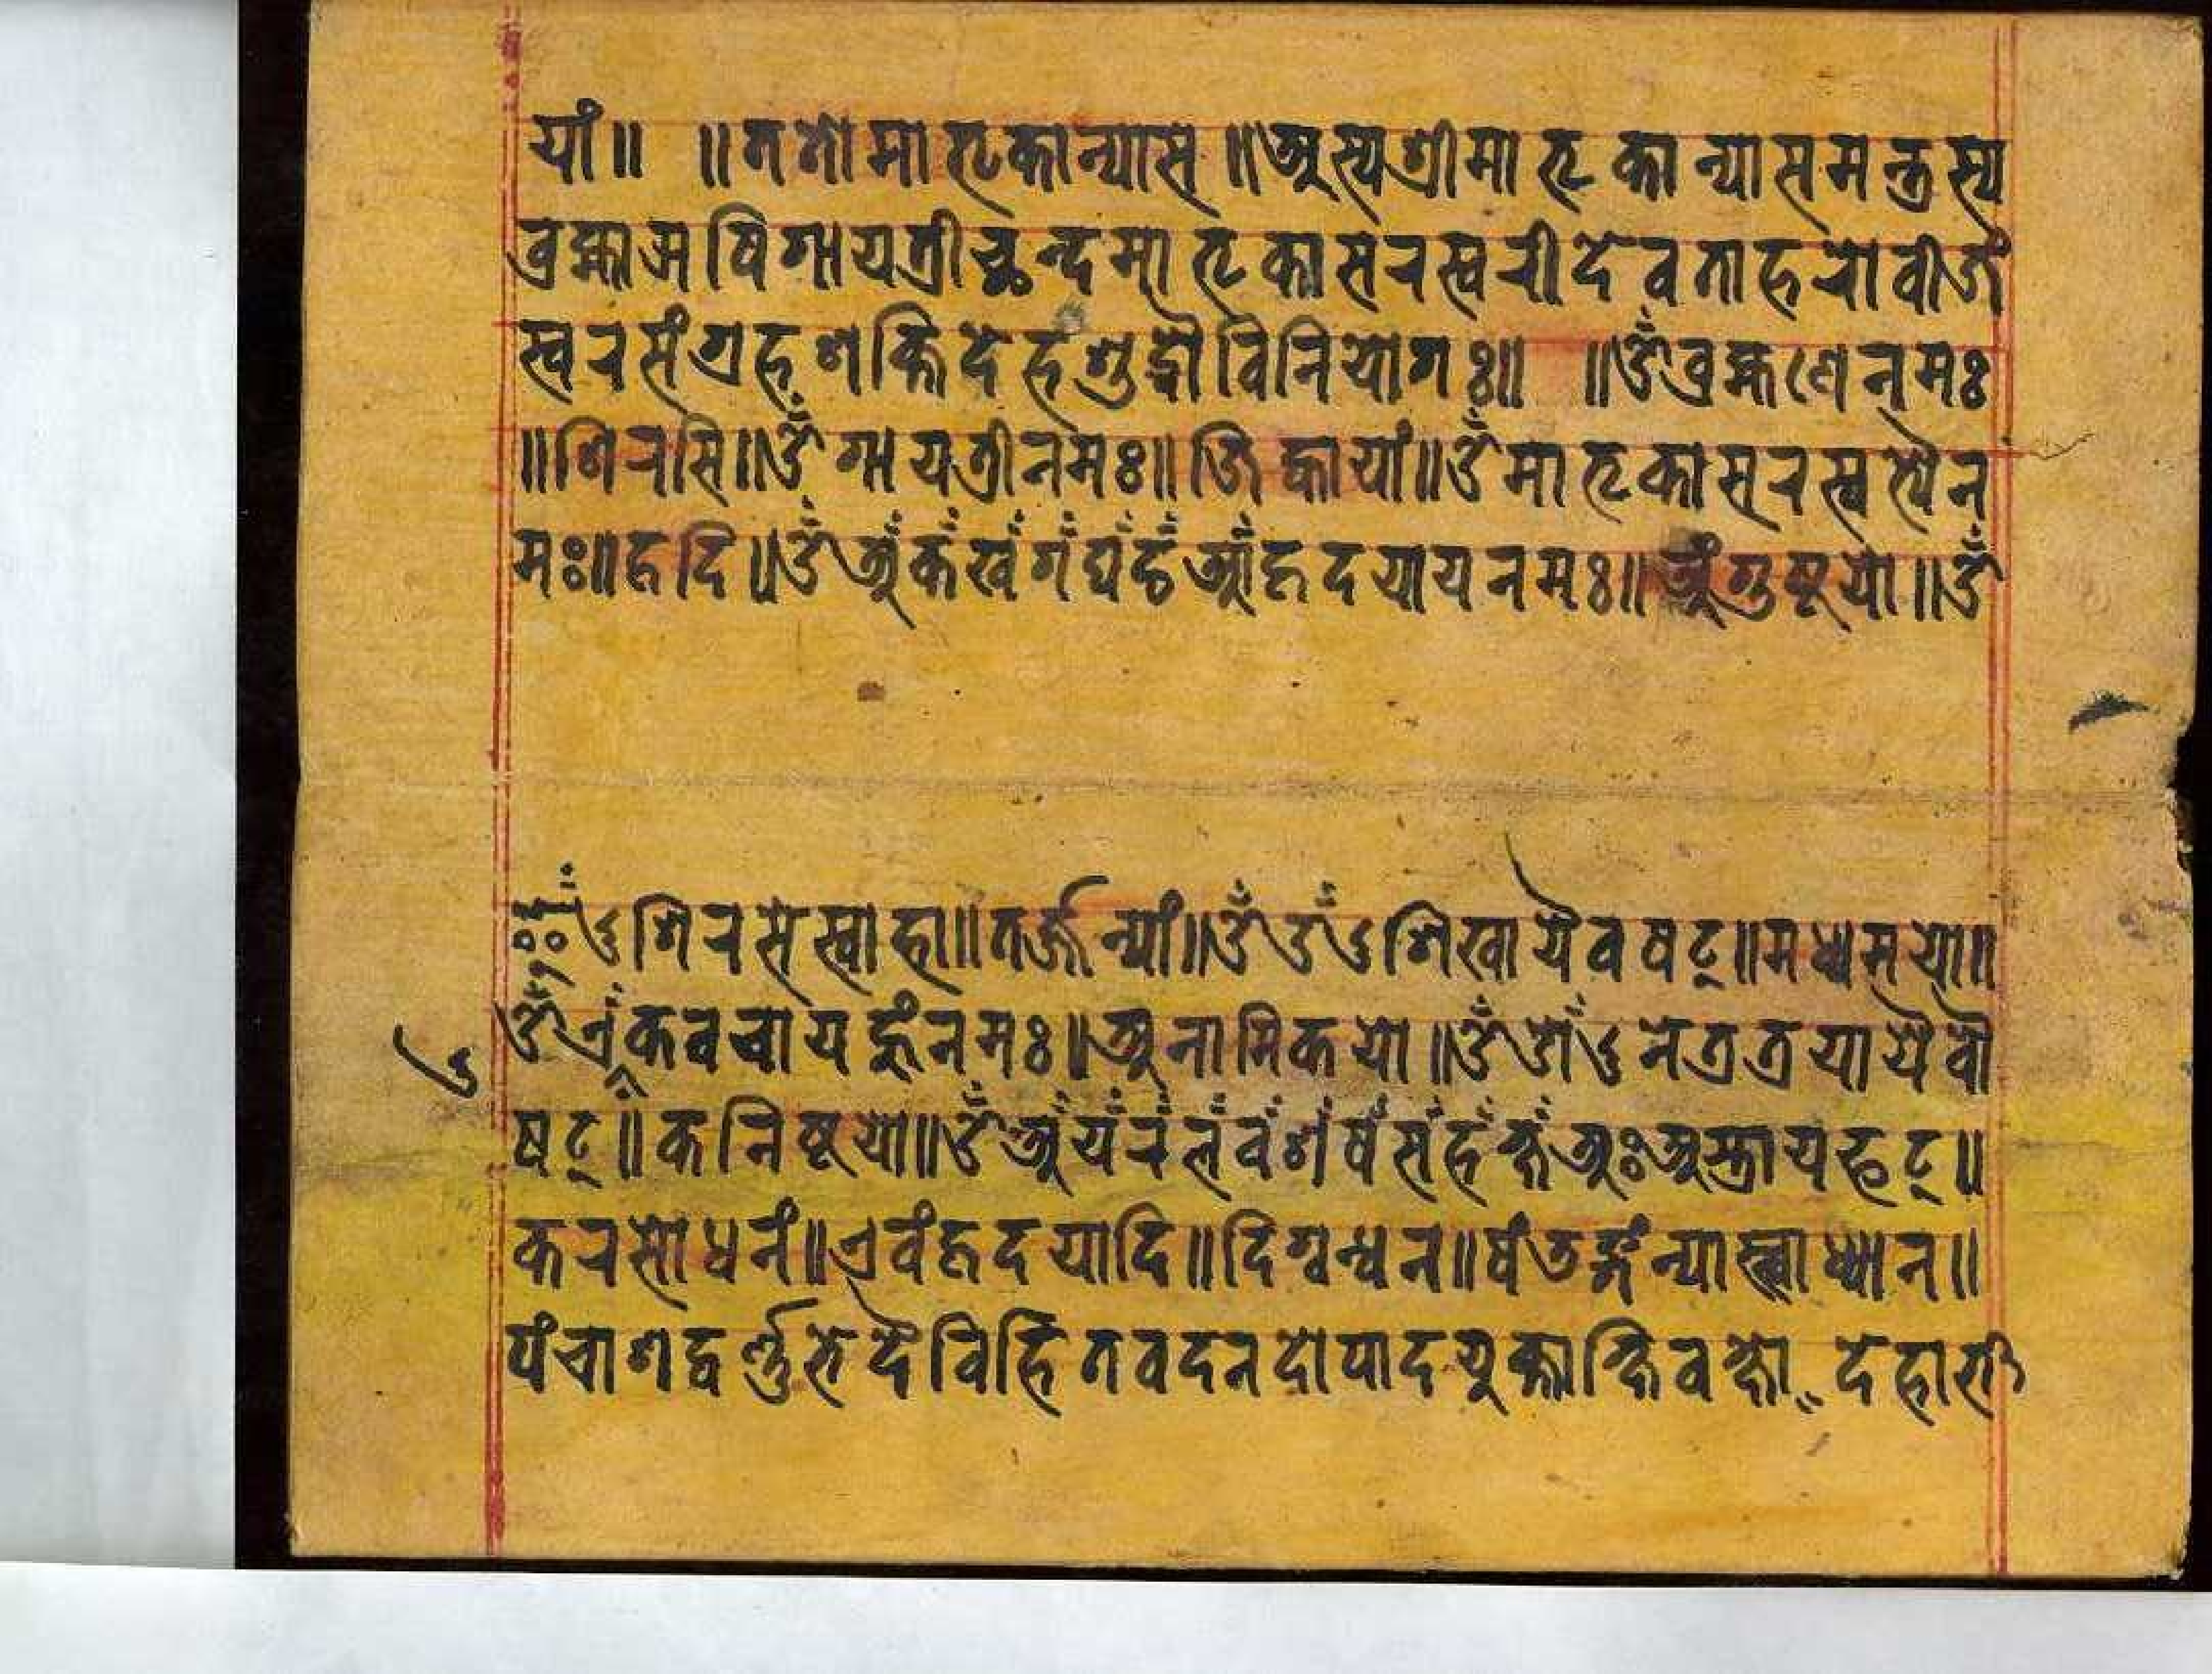 यां॥ ॥ततोमातृकान्यास॥अस्यश्रीमातृकान्यासमन्त्रस्य
ब्रह्माऋषिगायत्रीच्छन्दमातृकासरस्वतीदेवताहलोवीजं
स्वरसंग्रहशक्तिदेहशुद्धौविनियोगः॥ ॥ॐब्रह्मणेनमः
॥शिरसि॥ॐगायत्रीनमः॥जिह्वायां॥ॐमातृकासरस्वत्यैन
मः॥हृदि॥ॐअँकँखँगँघँङँआँहृदयायनमः॥अंगुष्ठयो॥ॐ
इँ५शिरसेस्वाहा॥तर्ज्जन्यां॥ॐउँ५शिखायैवषट्॥मध्यमयो॥
ॐएँकवचायहूंनमः॥अनामिकयो॥ॐओँ५नेत्रत्रयायैवौ
षट्॥कनिष्ठयो॥ॐअँयँरँलँवँशँषँसँहँक्षँअःअस्त्रायफट्॥
करसोधनं॥एवंहृदयादि॥दिग्बन्धन॥षंडङ्गंन्यास्त्वाध्यान॥
पंचाशद्वर्ण्णभेदैविहितवदनदोपादयुक्काक्षिवक्षो देहाभा